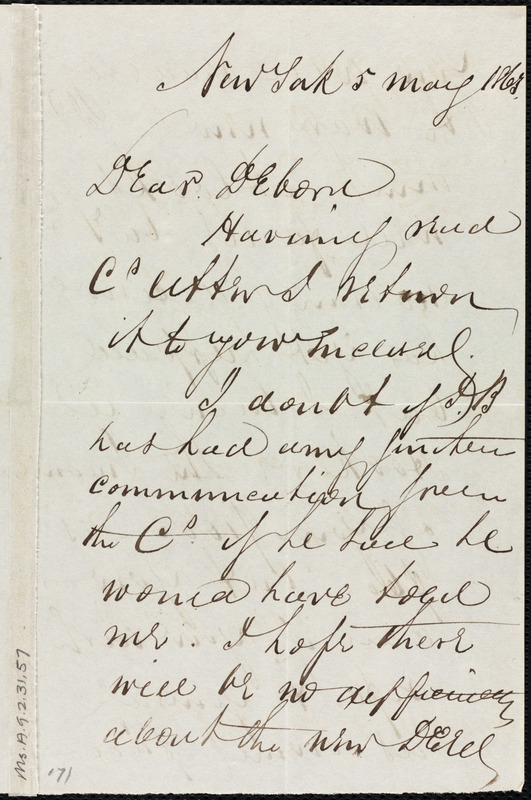 New York 5 May 186
Dear Debora
Having read
Cs letter I return
it to you inclosed.
I doubt if D.B
has had any further
communication from
the Cs if he had he
would have told
me. I hope there
will be no difficulty
about the new Deed
Ms.A.9.2.31.57
171